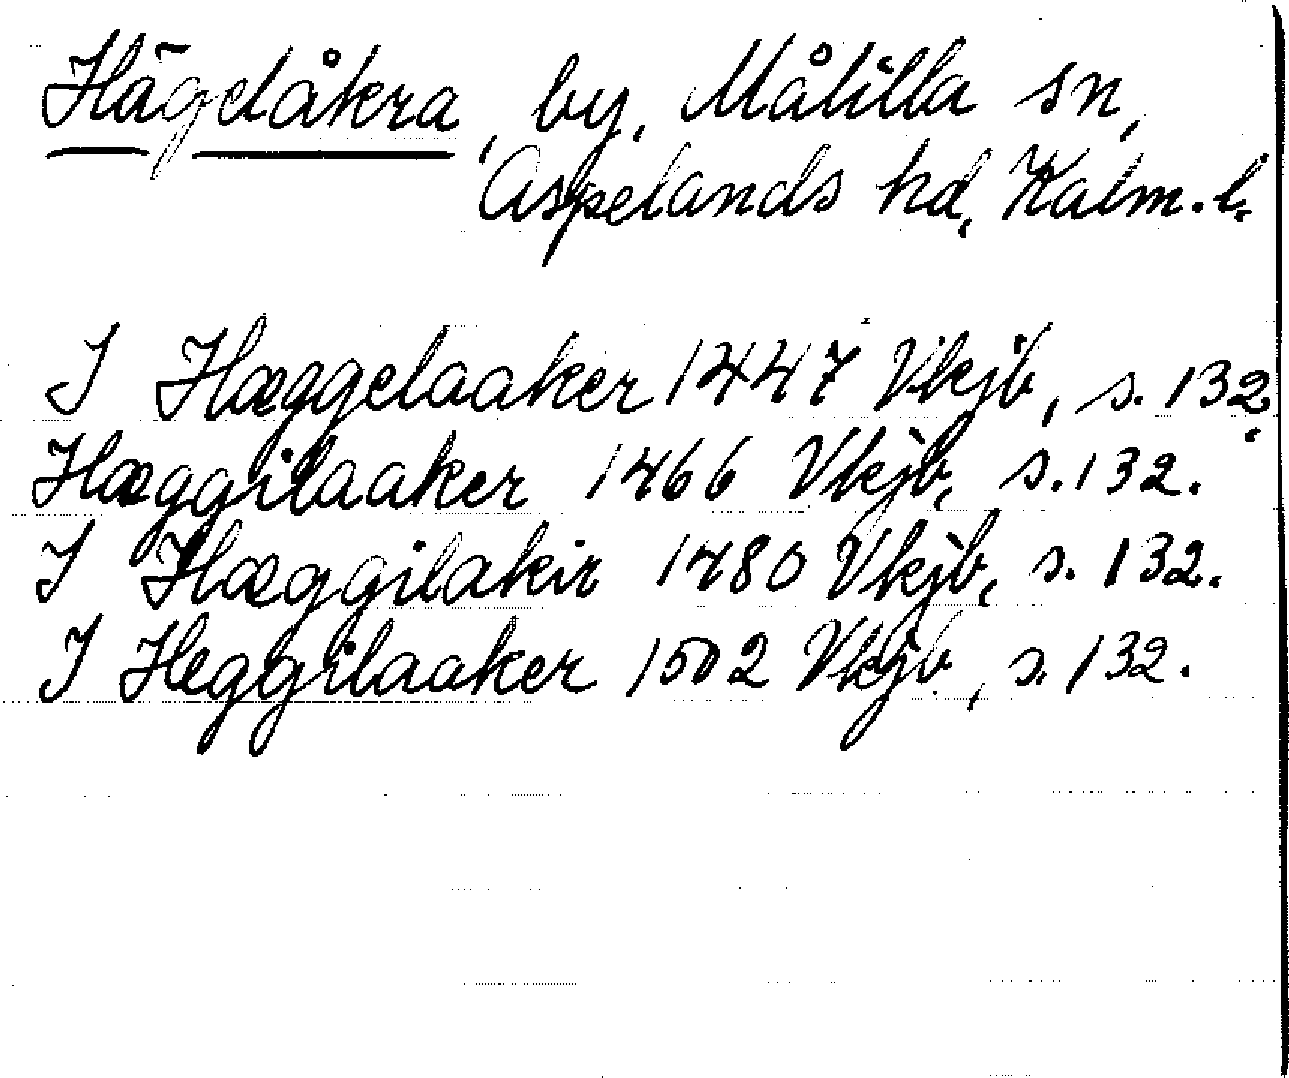 Hägelåkra, by, Målilla sn,
Aspelands hd, Kalm. l.
I Hæggelaaker 1447 Vkjb, s. 132.
Hæggilaaker 1466 Vkjb, s. 132.
I Hæggilakir 1480 Vkjb, s. 132.
I Heggilaaker 1502 Vkjb, s. 132.